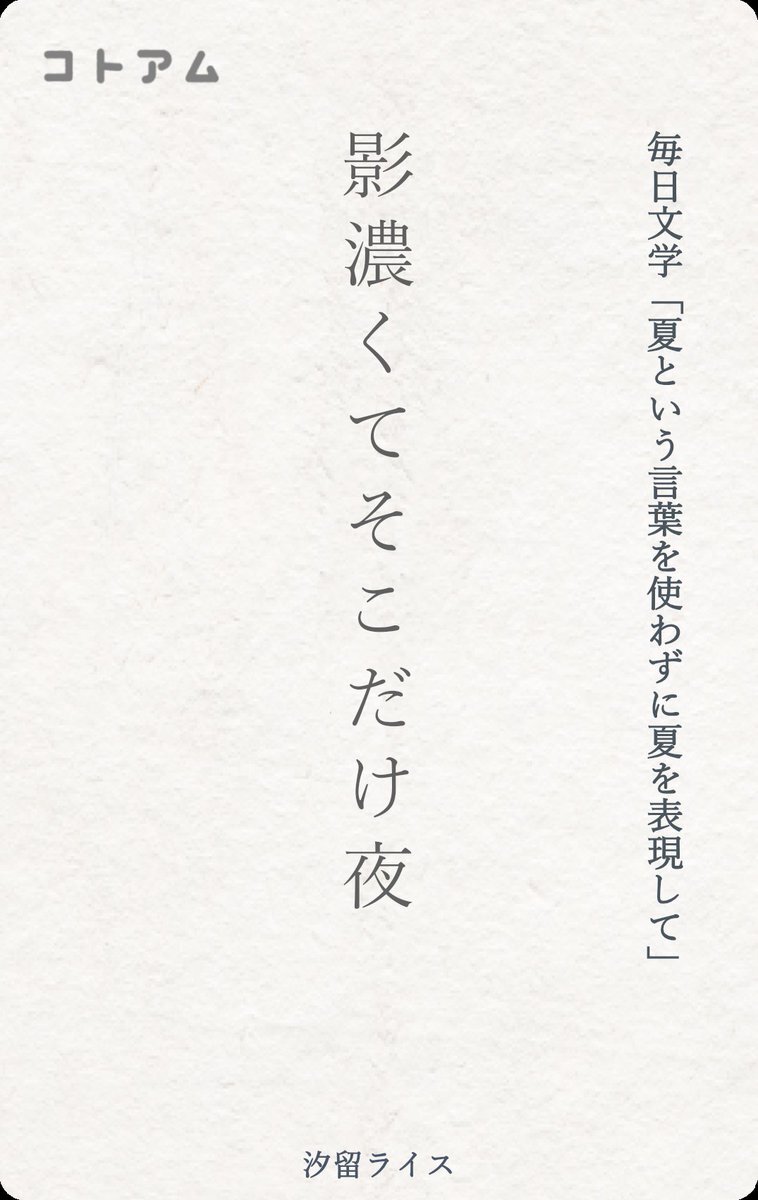 コトアム
毎日文学「夏という言葉を使わずに夏を表現して」
影濃くてそこだけ夜
汐留ライス